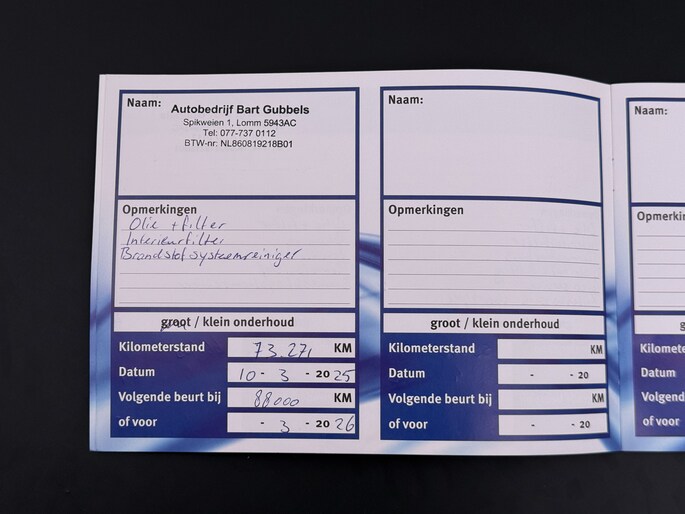 Naam:
Autobedrijf Bart Gubbels
Spikweien 1, Lomm 5943AC
Tel: 077-737 0112
BTW-nr: NL860819218B01
Opmerkingen
Olie + filter
Interieurfilter
Brandstofsysteemreiniger
groot / klein onderhoud
Kilometerstand KM
Datum 10 - 3 - 20 25
Volgende beurt bij 88000 KM
of voor - 3 - 20 26
Naam:
Opmerkingen
groot / klein onderhoud
Kilometerstand KM
Datum - - 20
Volgende beurt bij KM
of voor - - 20
Naam:
Opmerkin
Kilomete
Datum
Volgend
of voor